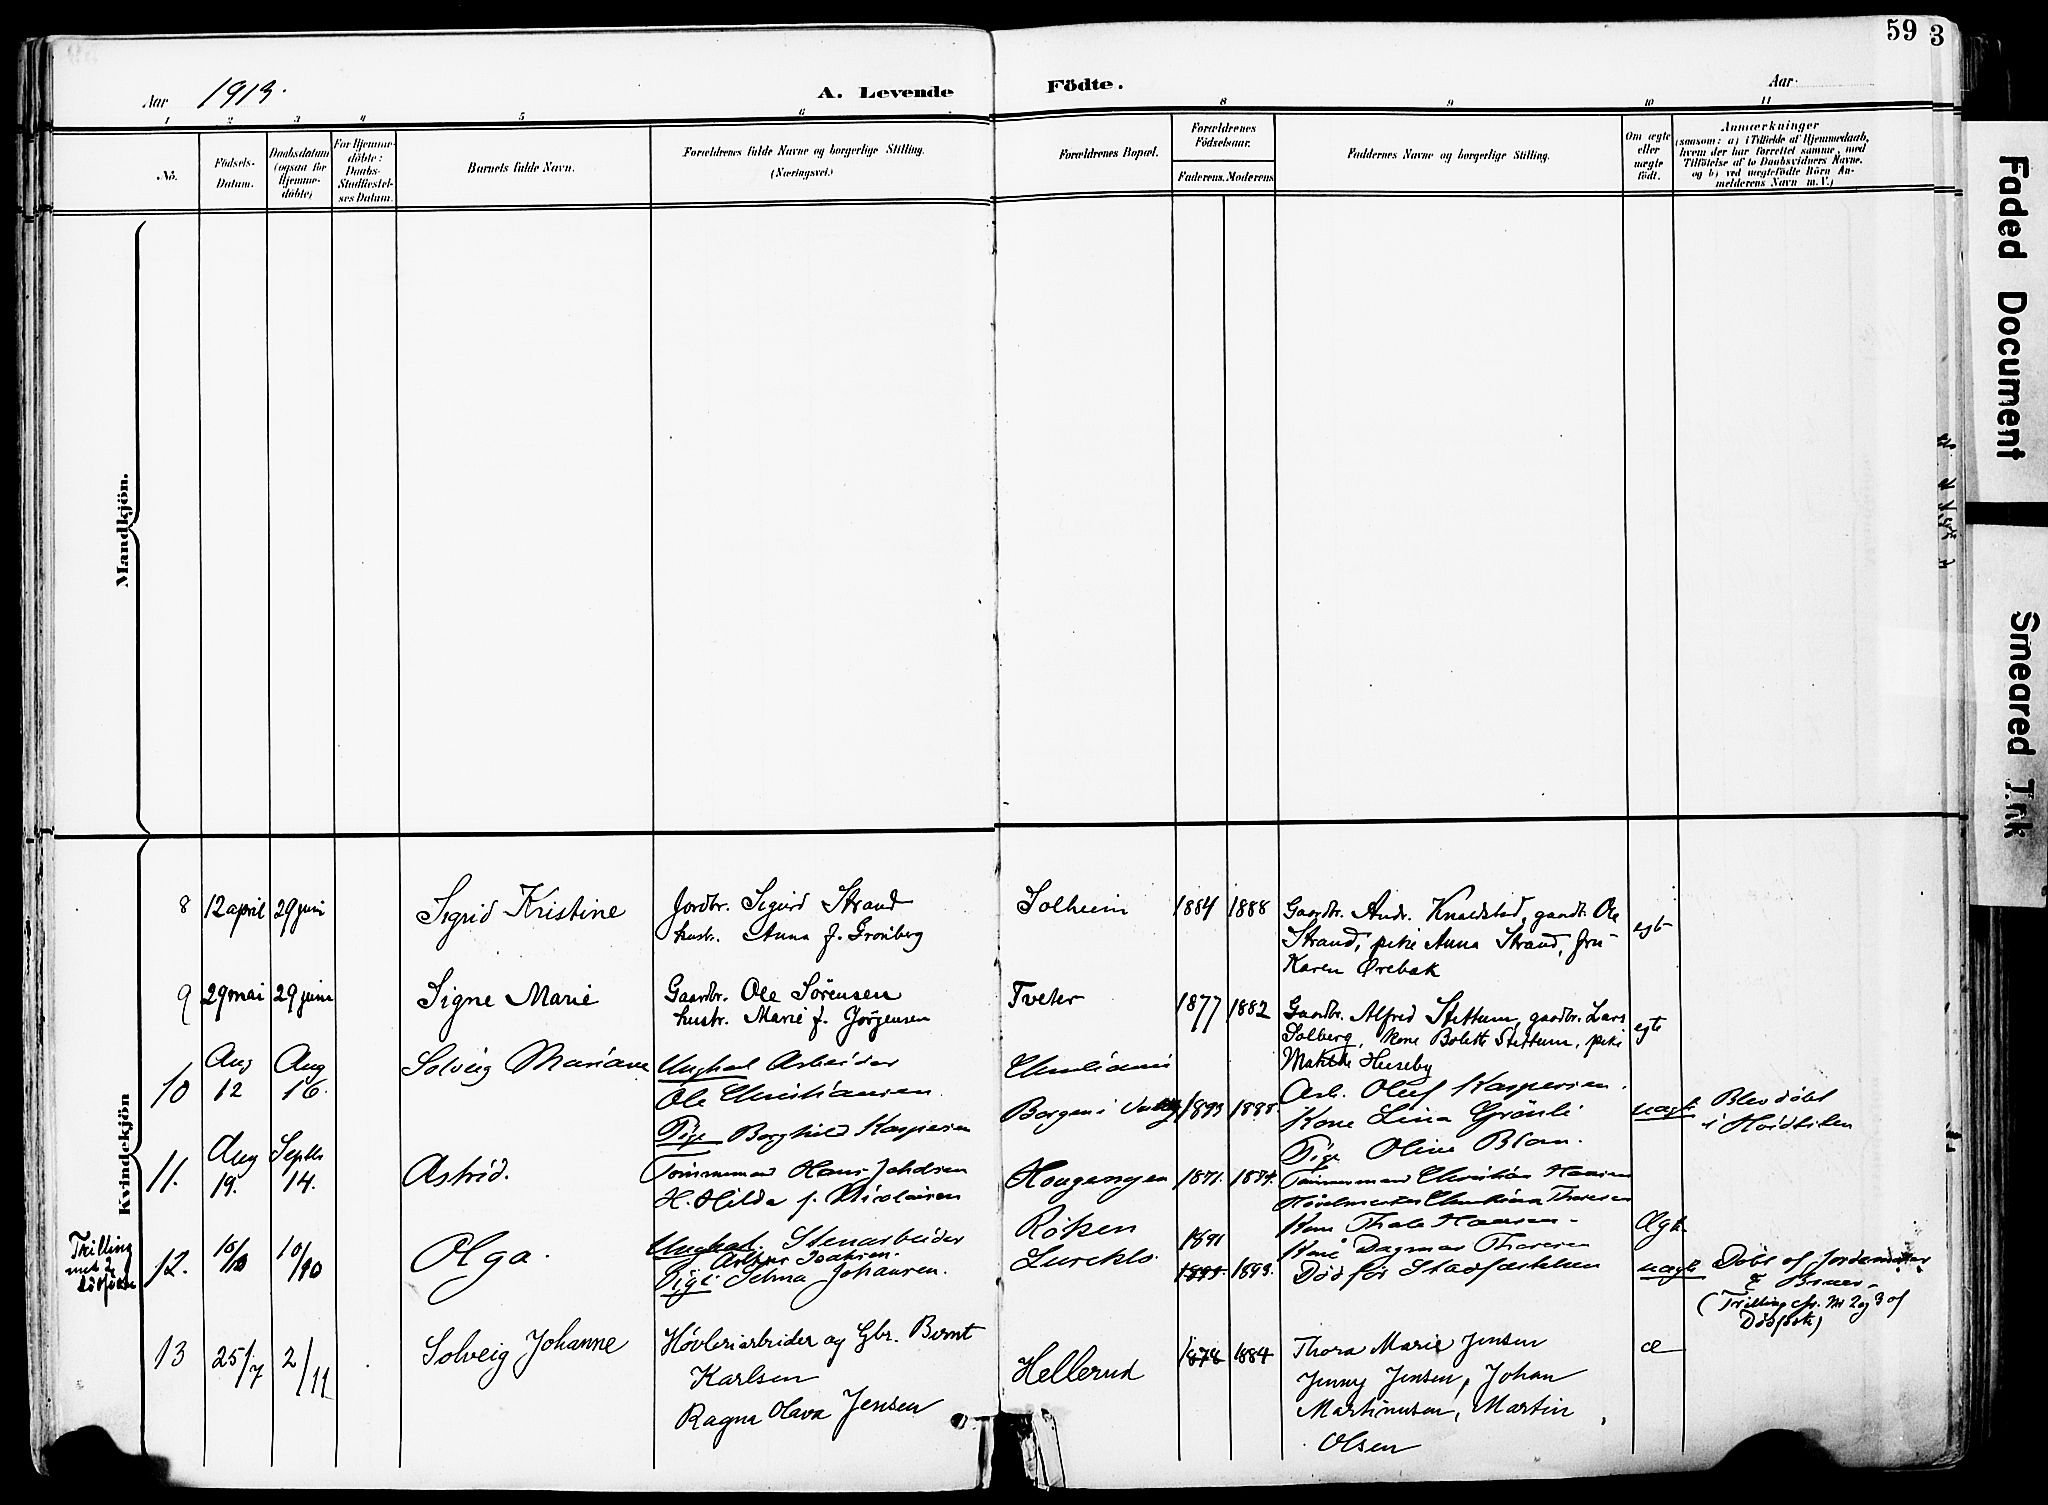 59 3
Aar 1913.
A. Levende Födte.
Aar
1 2 3 4 5 6 8 9 10 11
No.
Födsels-
Datum.
Daabsdatum
(ogsaa for
Hjemme-
döbte)
For Hjemme-
döbte:
Daabs-
Stadfæstel-
ses Datum.
Barnets fulde Navn.
Forældrenes fulde Navne og borgerlige Stilling.
(Næringsvei.)
Forældrenes Bopæl.
Forældrenes
Födselsaar.
Faderens. Moderens
Faddernes Navne og borgerlige Stilling.
Om ægte
eller
uægte
födt.
Anmærkninger
(saasom: a) i Tilfælde af Hjemmedaab,
hvem der har forrettet samme, med
Tilföielse af to Daabsvidners Navne.
og b) ved uægtefödte Börn An-
melderens Navn m. V.)
Mandkjön.
Kvindekjön
8 12 april 29 juni
Sigrid Kristine
Jordbr. Sigurd Strand
hustr. Anna f. Gronberg
Solheim
1884 1888
Gaardbr. Andr. Knaldstad, gaardb. Ole
Strand, pike Anna Strand, fru
Karen Ørebak
egt
9 29 mai 29 juni
Signe Marie
Gaardbr. Ole Sörensen
hustr. Marie f. Jörgensen
Tveter
1877 1882
Gaardbr. Alfred Stettum, gaardbr. Lars
Solberg, kone Bolette Stettum, pike
Matilde Huseby
egte
10 Aug 12 Aug 16.
Solveig Mariane
Ungkarl Arbeider
Ole Christiansen.
Pige Borghild Kaspersen
Borgen i
1893 1888.
Arb. Oluf Kaspersen.
Kone Lina Grönli
Pige Oline
uægte
Blev döbt
i
11. Aug 19. Septbr 14.
Astrid.
Tömmermand Hans Johansen
H. Hilda f. Nicolaisen
Haugangen
1871. 1874.
Tømmermand Christian Hansen
Kone Thale Hansen
Kone Dagmar Thoresen
Ægte
Trilling
med 2
dödfödte
12. 10/10 10/10
Olga.
Ungkarl Stenarbeider
Pige Selma Johansen.
Röken
1891
1893.
Död för Stadfæstelsen
uægte
Döbt af Jordemoder
(Trilling cfr. Nr 2 og 3 af
Dödfödte)
13 25/7 2/11
Solveig Johanne
Høvleriarbeider og Gbr. Bernt
Karlsen
Ragna Olava Jensen
Hellerud
1878 1884
Thora Marie Jensen
Jenny Jensen, Johan
Martinusen, Martin
Olsen
æ
Faded Document
Smeared Ink